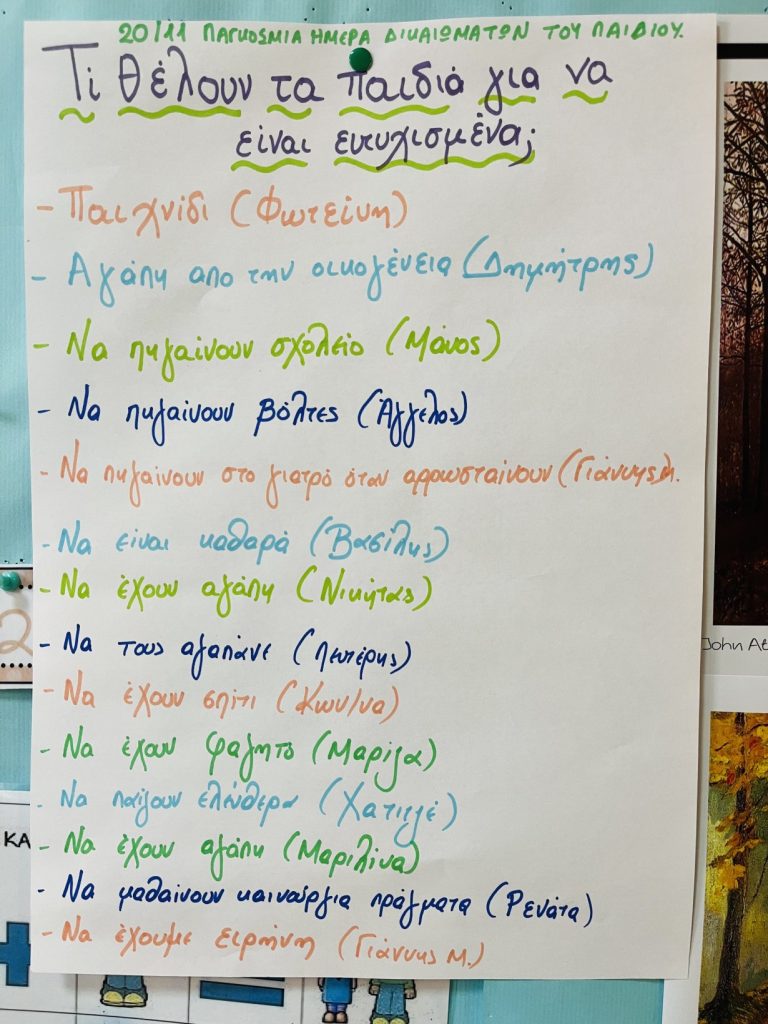 20/11 ΠΑΓΚΟSΜΙΑ ΗΜΕΡΑ ΔΙΚΑΙΩΜΑΤΩΝ ΤΟΥ ΠΑΙΔΙΟΥ.
Τί θέλουν τα παιδιά για να
είναι ευτυχισμένα;
- Παιχνίδι (Φωτείνη)
- Αγάπη απο την οικογένεια (Δημήτρης)
- Να πηγαίνουν σχολείο (Μάνος)
- Να πηγαίνουν βόλτες (Άγγελος)
- Να πηγαίνουν στο γιατρό όταν αρρωσταίνουν (Γιάννης Μ.
- Να είναι καθαρά (Βασίλης)
- Να έχουν αγάπη (Νικήτας)
- Να τους αγαπάνε (Λευτέρης)
- Να έχουν σπίτι (Κων/να)
- Να έχουν φαγητό (Μαρίζα)
- Να παίζουν ελεύθερα (Χατιτζέ)
- Να έχουν αγάπη (Μαριλίνα)
- Να μαθαίνουν καινούργια πράγματα (Ρενάτα)
- Να έχουμε ειρήνη (Γιάννης Μ.)
John At
2
ΚΑ